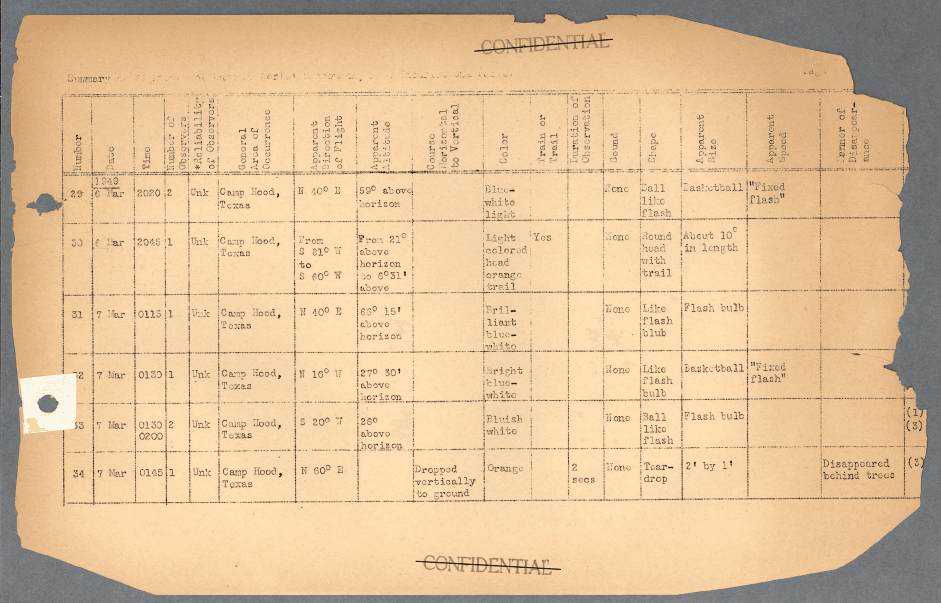 CONFIDENTIAL
Summary
Number
Date
Time
Number of Observers
*Reliability of Observers
General Area of Occurrence
Apparent Direction of Flight
Apparent Altitude
Course Horizontal to Vertical
Color
Train or Trail
Duration of Observation
Sound
Shape
Apparent Size
Apparent Speed
Manner of Disappear-ance
1949
29 6 Mar 2020 2 Unk Camp Hood, N 40° E 59° above Blue- None Ball Basketball "Fixed
Texas horizon white like flash"
light flash
30 6 Mar 2045 1 Unk Camp Hood, From From 21° Light Yes None Round About 10°
Texas S 81° W above colored head in length
to horizon head with
S 60° W to 6°31' orange trail
above trail
31 7 Mar 0115 1 Unk Camp Hood, N 40° E 66° 15' Bril- None Like Flash bulb
Texas above liant flash
horizon blue- blub
white
32 7 Mar 0130 1 Unk Camp Hood, N 16° W 27° 30' Bright None Like Basketball "Fixed
Texas above blue- flash flash"
horizon white bulb
33 7 Mar 0130 2 Unk Camp Hood, S 20° W 26° Bluish None Ball Flash bulb (1)
0200 Texas above white like (3)
horizon flash
34 7 Mar 0145 1 Unk Camp Hood, N 60° E Dropped Orange 2 None Tear- 2' by 1' Disappeared (3)
Texas vertically secs drop behind trees
to ground
CONFIDENTIAL